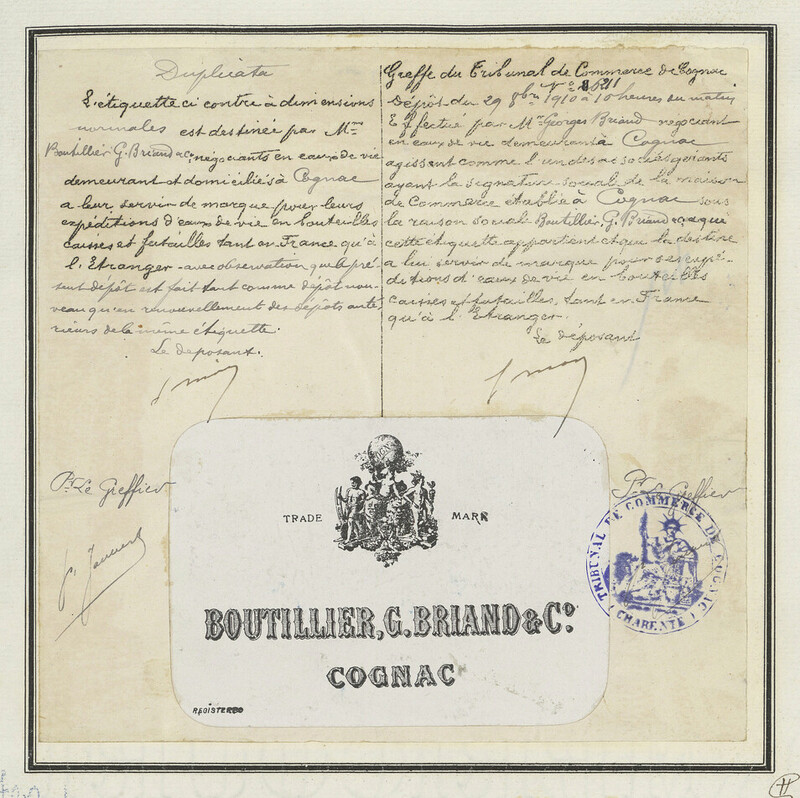 Duplicata
L'étiquette ci contre à dimensions
normales est destinée par Mrs
Boutillier G. Briand & Co négociants en eaux de vie
demeurant et domiciliés à Cognac
a leur servir de marque pour leurs
expéditions d'eaux de vie en bouteilles
caisses et futailles tant en France qu'à
l'Etranger - avec observation que le pré-
sent dépôt est fait tant comme dépôt nou-
veau qu'en renouvellement des dépôts anté
rieurs de la même étiquette.
Le deposant.
Greffe du Tribunal de Commerce de Cognac
No
Dépôt du 29 8bre 1910 à 10 heures du matin
Effectué par Mr Georges Briand négociant
en eaux de vie demeurant à Cognac
agissant comme l'un des associés gérants
ayant la signature social de la maison
de Commerce établie à Cognac sous
la raison social Boutillier, G. Briand & Co a qui
cette étiquette appartient et qui la destine
a lui servir de marque pour ses expé-
ditions d'eaux de vie en bouteilles
caisses et futailles, tant en France
qu'à l'Etranger.
Le déposant
Pr Le Greffier
Pr Le Greffier
TRADE MARK
BOUTILLIER, G. BRIAND & Co.
COGNAC
REGISTERED
TRIBUNAL DE COMMERCE DE COGNAC
(CHARENTE)
H